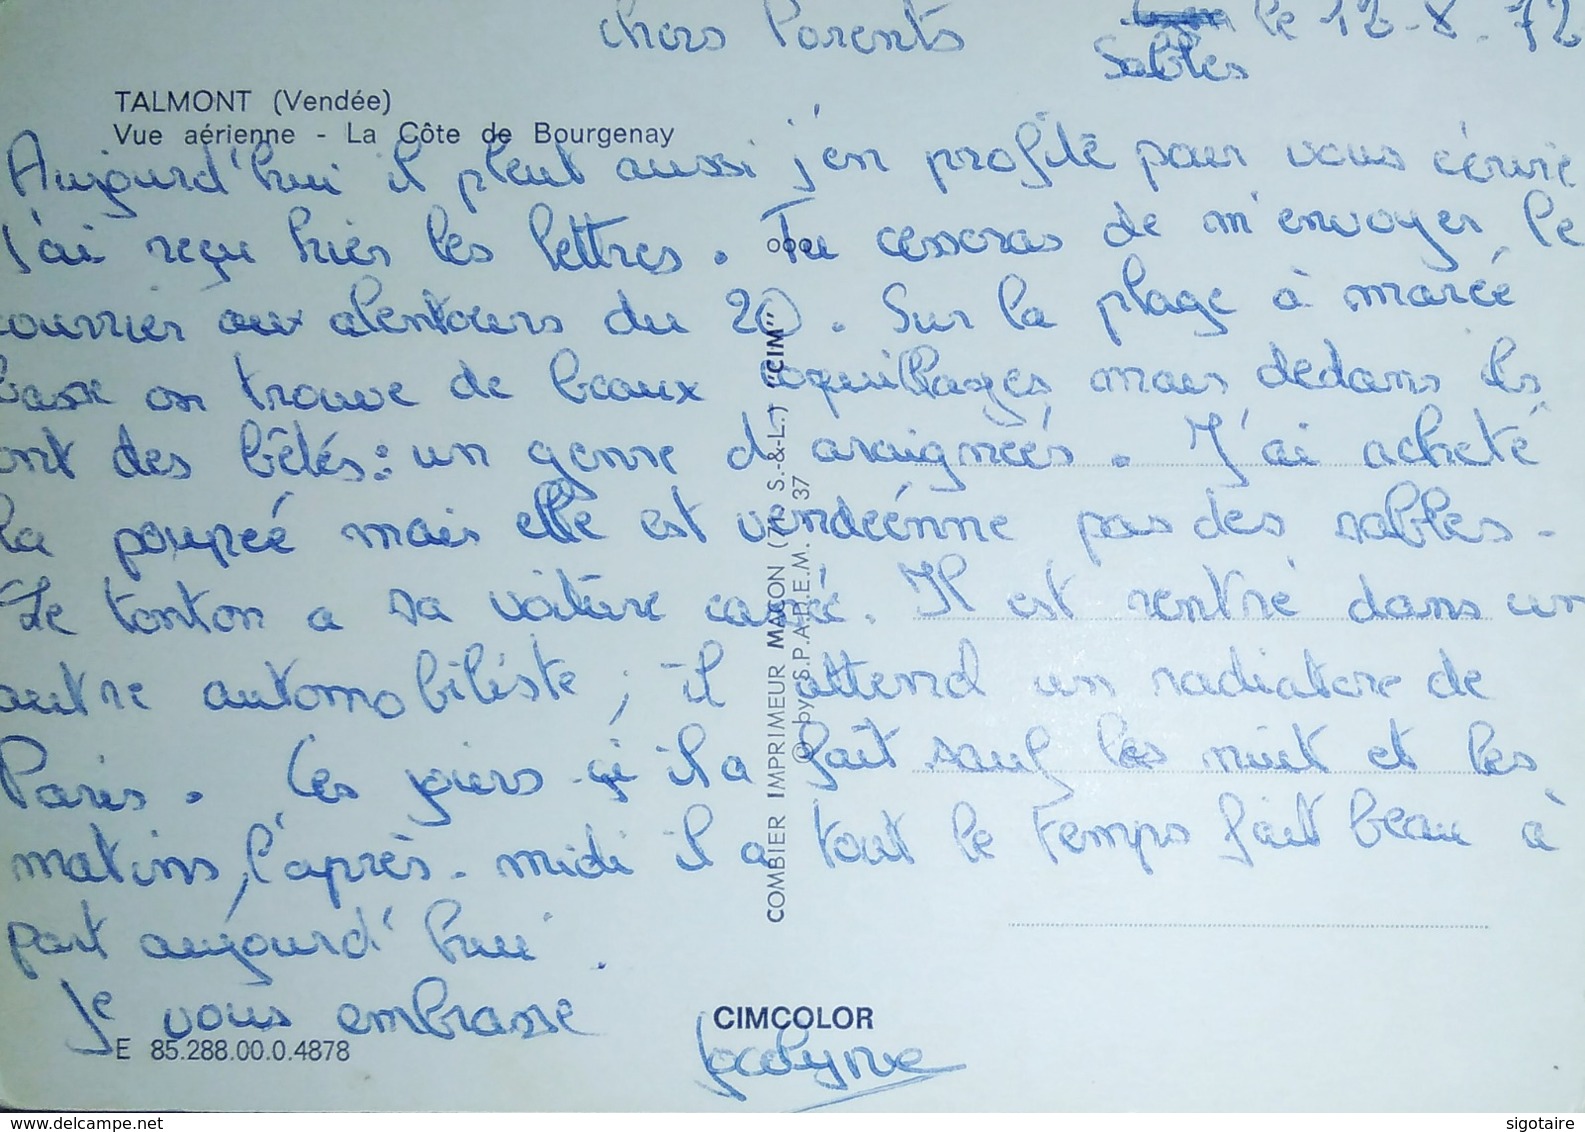 chers Parents
Sables le 12-8.72
TALMONT (Vendée)
Vue aérienne - La Côte de Bourgenay
Aujourd'hui il pleut aussi j'en profite pour vous écrire
J'ai reçu hier les lettres. Tu cesseras de m'envoyer le
courrier aux alentours du 20. Sur la plage à marée
basse on trouve de beaux coquillages mais dedans ils
ont des bêtes : un genre d'araignées. J'ai acheté
la poupée mais elle est vendéenne pas des sables.
Le tonton a sa voiture cassée. Il est rentré dans un
autre automobiliste ; il attend un radiateur de
Paris. Ces jours-ci il a fait sauf les nuit et les
matins, l'après-midi il a tout le temps fait beau à
part aujourd'hui.
Je vous embrasse
Jocelyne
COMBIER IMPRIMEUR MACON (71 S.-&-L.) "CIM"
© by S.P.A.D.E.M. 37
CIMCOLOR
E 85.288.00.0.4878
www.delcampe.net
sigotaire